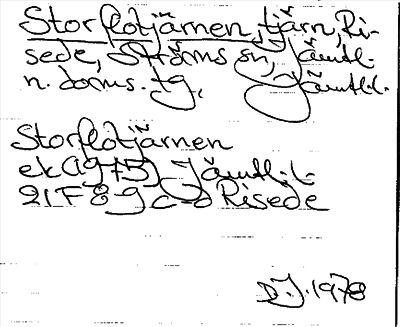 Storflotjärnen, tjärn, Ri-
sede, Ströms sn, Jämtl.
n. doms. tg, Jämtl.l.
Storflotjärnen
ek (1975) Jämtl.l.
21F 8 g c-d Risede
D.J. 1978